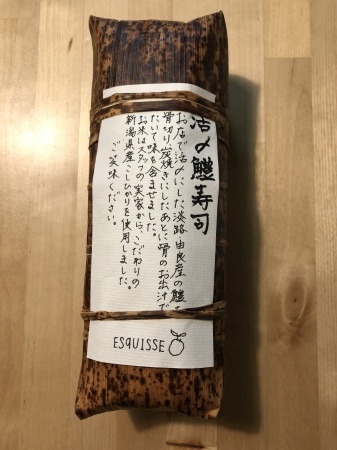 活〆鱧寿司
お店で活〆にした淡路・由良産の鱧を
骨切り炭焼きにしたあとに骨のお出汁で
たいて味を含ませました。
お米はスタッフの実家から、こだわりの
新潟県産こしひかりを使用しました。
ご笑味ください。
ESQUISSE